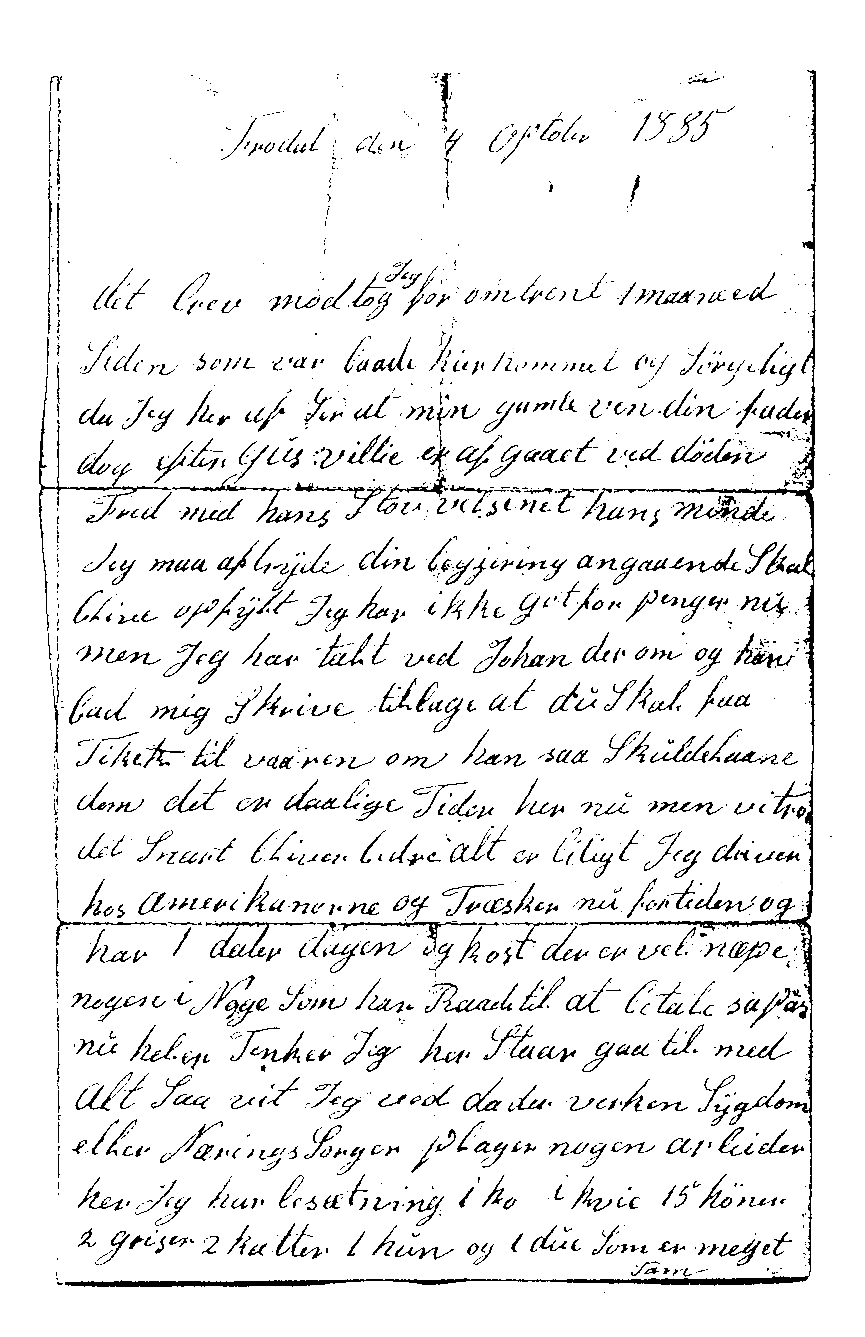 Frodal den 4 Oktober 1885
dit brev modtog Jeg for omtrent 1 maaneed
Siden som var baade kierkommet og Sörgeligt
da Jeg her af Ser at min gamle ven din fader
dog efter Gùs villie er af gaaet ved döden
Fred med hans Stöv velsinet hans minde
Jeg maa afbryde din begjæring angaaende Skal
blive opfylt Jeg har ikke got for penger nù
men Jeg har talt ved Johan der om og han
bad mig Skrive tilbage at dù Skal faa
Tiket til vaaren om han saa Skùlde laane
dem det er daalige Tider her nù men vi tror
det Snart bliver bedre alt er biligt Jeg driver
hos Amerikanerne og Træsker nù for tiden og
har 1 daler dagen og kost der er vel næpe
nogen i Noge Som har Raad til at betale sapas
nù heler Tenker Jeg her Staar gaa til med
Alt Saa vit Jeg ved da der verken Sÿgdom
eller Nærings Sorger plager nogen arbeider
her Jeg har besætning 1 ko 1 kvie 15 höner
2 griser 2 katter 1 hùn og 1 dùe Som er meget
Tam